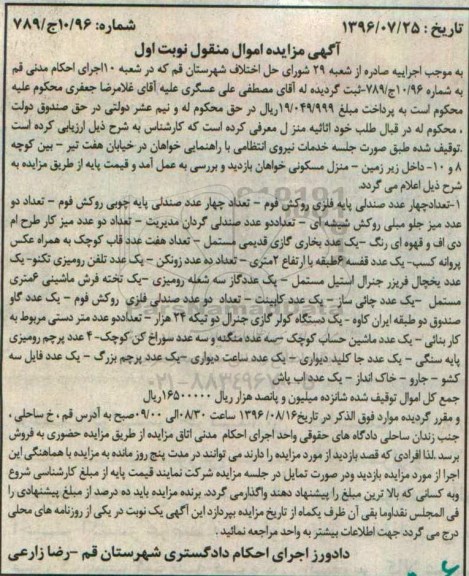 تاریخ : ۱۳۹۶/۰۷/۲۵ شماره: ۱۰/۹۶ج/۷۸۹
آگهی مزایده اموال منقول نوبت اول
به موجب اجراییه صادره از شعبه ۲۹ شورای حل اختلاف شهرستان قم که در شعبه ۱۰اجرای احکام مدنی قم
به شماره ۱۰/۹۶ج/۷۸۹-ثبت گردیده له آقای مصطفی علی عسگری علیه آقای غلامرضا جعفری محکوم علیه
محکوم است به پرداخت مبلغ ۱۹/۰۴۹/۹۹۹ریال در حق محکوم له و نیم عشر دولتی در حق صندوق دولت
، محکوم له در قبال طلب خود اثاثیه منز ل معرفی کرده است که کارشناس به شرح ذیل ارزیابی کرده است
.توقیف شده طبق صورت جلسه خدمات نیروی انتظامی با راهنمایی خواهان در خیابان هفت تیر - بین کوچه
۸ و ۱۰- داخل زیر زمین - منزل مسکونی خواهان بازدید و بررسی به عمل آمد و قیمت پایه از طریق مزایده به
شرح ذیل اعلام می گردد.
۱-تعدادچهار عدد صندلی پایه فلزی روکش فوم - تعداد چهار عدد صندلی پایه چوبی روکش فوم - تعداد دو
عدد میز جلو مبلی روکش شیشه ای - تعداددو عدد صندلی گردان مدیریت - تعداد دو عدد میز کار طرح ام
دی اف و قهوه ای رنگ -یک عدد بخاری گازی قدیمی مستمل - تعداد هفت عدد قاب کوچک به همراه عکس
پروانه کسب- یک عدد قفسه ۶طبقه با ارتفاع ۲متری - تعداد ده عدد زونکن - یک عدد تلفن رومیزی تکنو- یک
عدد یخچال فریزر جنرال استیل مستمل - یک عددگاز سه شعله رومیزی -یک تخته فرش ماشینی ۶متری
مستمل -یک عدد چائی ساز - یک عدد کابینت - تعداد دو عدد صندلی فلزی روکش فوم - یک عدد گاو
صندوق دو طبقه ایران کاوه - یک دستگاه کولر گازی جنرال دو تیکه ۲۴ هزار - تعداددو عدد متر دستی مربوط به
کار بنائی - یک عدد ماشین حساب کوچک -سه عدد منگنه و سه عدد سوراخ کن کوچک- ۴ عدد پرچم رومیزی
پایه سنگی - یک عدد جا کلید دیواری - یک عدد ساعت دیواری -یک عدد پرچم بزرگ - یک عدد فایل سه
کشو - جارو - خاک انداز - یک عدد اب پاش
جمع کل اموال توقیف شده شانزده میلیون و پانصد هزار ریال ۱۶۵۰۰۰۰۰ریال
و مقرر گردیده موارد فوق الذکر در تاریخ۱۳۹۶/۰۸/۱۶ ساعت ۰۸/۳۰الی ۰۹/۰۰صبح به آدرس قم ، خ ساحلی ،
جنب زندان ساحلی دادگاه های حقوقی واحد اجرای احکام مدنی اتاق مزایده از طریق مزایده حضوری به فروش
برسد .لذا افرادی که قصد بازدید از مورد مزایده را دارند می توانند در مدت پنج روز مانده به مزایده با هماهنگی این
اجرا از مورد مزایده بازدید ودر صورت تمایل در جلسه مزایده شرکت نمایند قیمت پایه از مبلغ کارشناسی شروع
وبه کسانی که بالا ترین مبلغ را پیشنهاد دهند واگذارمی گردد. برنده مزایده باید ده درصد از مبلغ پیشنهادی را
فی المجلس نقداوما بقی آن ظرف یکماه از تاریخ مزایده بپردازد این آگهی یک نوبت در یکی از روزنامه های محلی
درج می گردد جهت اطلاعات بیشتر به واحد مراجعه نمائید .
دادورز اجرای احکام دادگستری شهرستان قم -رضا زارعی